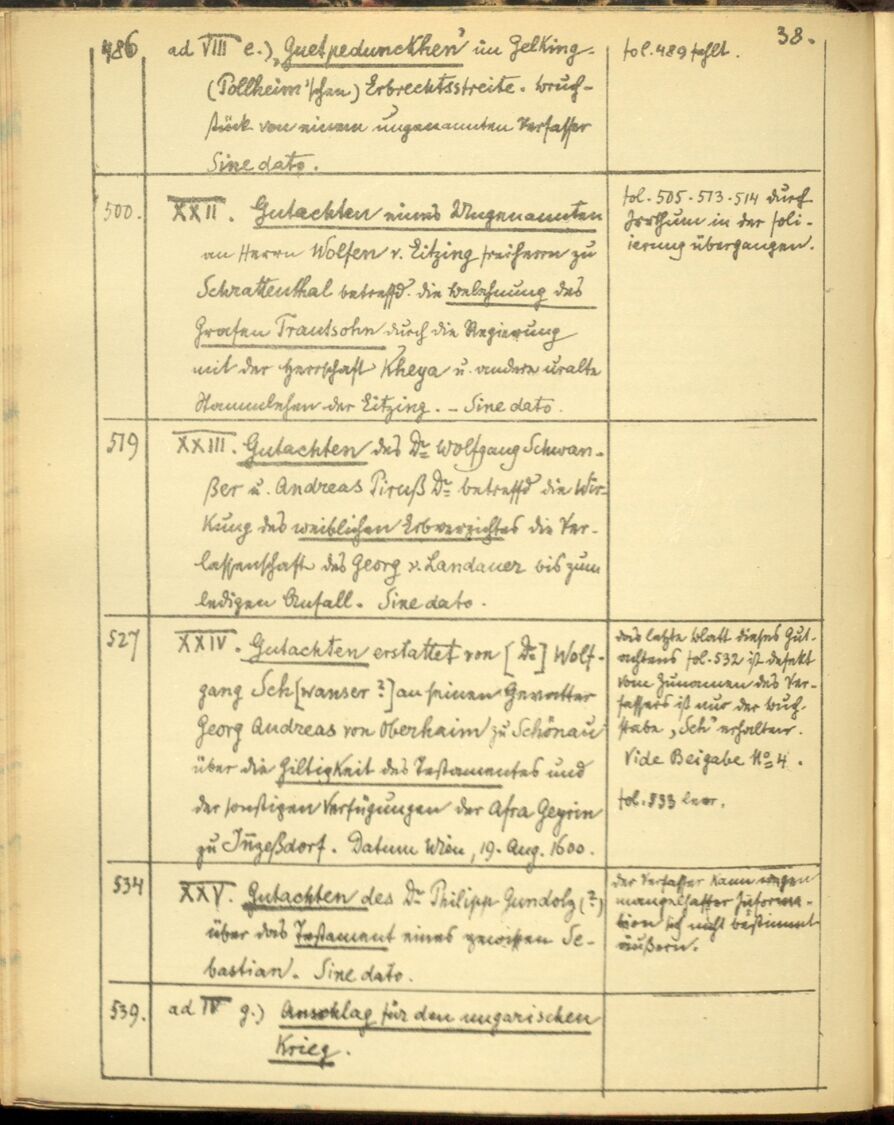 38.
486 ad VIII e.) „Guetpedunckhen" im Gelking-
(Pollheim'schen) Erbrechtsstreite. Bruch-
stück von einem ungenannten Verfasser
Sine dato.
fol. 489 fehlt.
500. XXII. Gutachten eines Ungenannten
an Herrn Wolfen v. Eitzing Freiherrn zu
Schrattenthal betreffd. die Belehnung des
Grafen Trautsohn durch die Regierung
mit der Herrschaft Kheya u. andere uralte
Stammlehen der Eitzing. – Sine dato.
fol. 505. 513. 514 durch
Irrthum in der Foli-
ierung übergangen.
519 XXIII. Gutachten des Dr Wolfgang Schwan-
ßer u. Andreas Piruß Dr betreffd die Wir-
kung des weiblichen Erbverzichtes die Ver-
lassenschaft des Georg v. Landauer bis zum
ledigen Anfall. Sine dato.
527 XXIV. Gutachten erstattet von [Dr] Wolf-
gang Sch[wanser?] an seinen Gevatter
Georg Andreas von Oberhaim zu Schönau
über die Giltigkeit des Testamentes und
der sonstigen Verfügungen der Afra Geyrin
zu Inzeßdorf. Datum Wien, 19. Aug. 1600.
das letzte Blatt dieses Gut-
achtens fol. 532 ist defekt
vom Zunamen des Ver-
fassers ist nur der Buch-
stabe „Sch" erhalten.
Vide Beigabe No 4.
fol. 533 leer.
534 XXV. Gutachten des Dr Philipp Gundolz (?)
über das Testament eines gewissen Se-
bastian. Sine dato.
der Verfasser kann wegen
mangelhafter Informa-
tion sich nicht bestimmt
äußern.
539. ad IV g.) Anschlag für den ungarischen
Krieg.